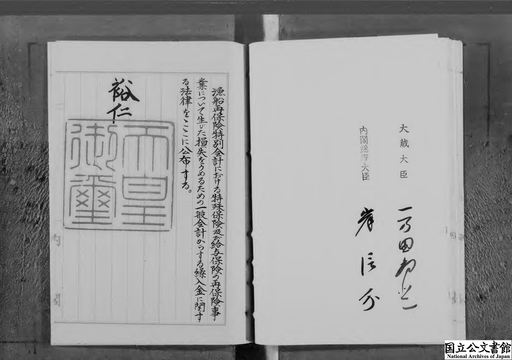 漁船再保険特別会計における特殊保険及び給与保険の再保険事
業について生じた損失をうめるための一般会計からする繰入金に関す
る法律をここに公布する。
裕仁
天皇
御璽
大蔵大臣
一万田尚登
内閣総理大臣
岸信介
国立公文書館
National Archives of Japan